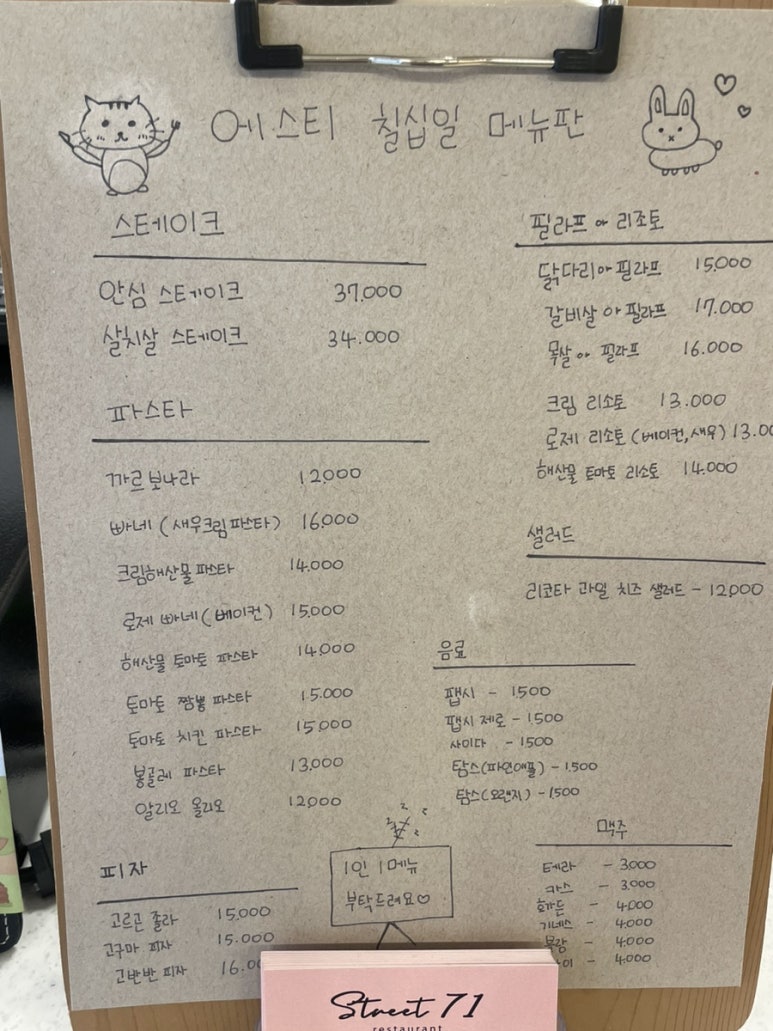 에.스티 칠십일 메뉴판
스테이크
안심 스테이크 37.000
살치살 스테이크 34.000
파스타
까르보나라 12,000
빠네 (새우크림파스타) 16,000
크림해산물파스타 14,000
로제 빠네 (베이컨) 15,000
해산물 토마토 파스타 14,000
토마토 짬뽕 파스타 15.000
토마토 치킨 파스타 15,000
봉골레 파스타 13,000
알리오 올리오 12,000
피자
고르곤 졸라 15,000
고구마 피자 15.000
고반반 피자 16.0
필라프 & 리조토
닭다리 필라프 15,000
갈비살 필라프 17.000
목살 필라프 16.000
크림 리소토 13.000
로제 리소토 (베이컨,새우) 13.00
해산물 토마토 리소토 14.000
샐러드
리코타 과일 치즈 샐러드 - 12,000
음료
팹시 - 1500
팹시 제로 - 1.500
사이다 - 1500
탐스(파인애플) - 1.500
탐스(오랜지) - 1500
맥주
테라 - 3,000
카스 - 3,000
호가든 - 4,000
기네스 - 4.000
블랑 - 4.000
이 - 4.000
1인 1메뉴
부탁드려요♡
Street 71
restaurant